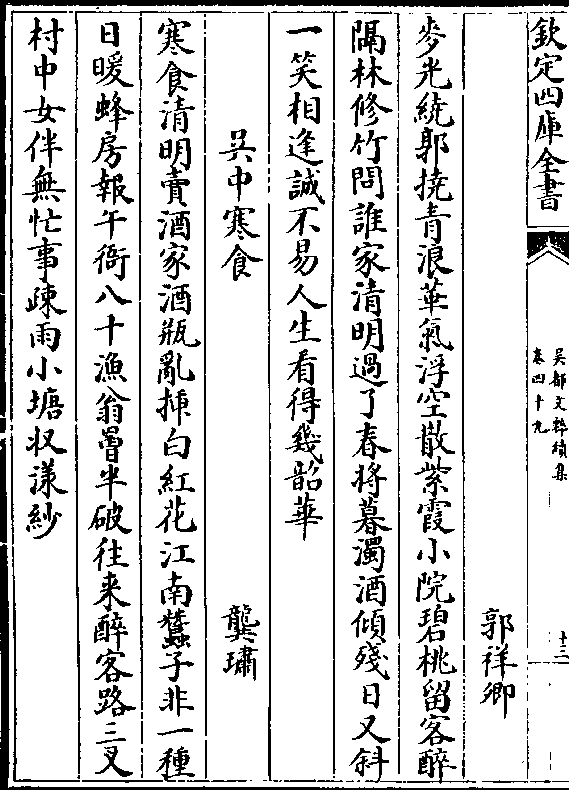 欽定四庫全書
吳都文粹續集
卷四十九
十三
郭祥卿
麥光繞郭撓青浪華氣浮空散紫霞小院碧桃留客醉
隔林修竹問誰家清明過了春將暮濁酒傾殘日又斜
一笑相逢誠不易人生看得幾韶華
吳中寒食
龔璛
寒食清明賣酒家酒瓶亂揷白紅花江南蠶子非一種
日暖蜂房報午衙八十漁翁罾半破往来醉客路三叉
村中女伴無忙事疎雨小塘收漾紗